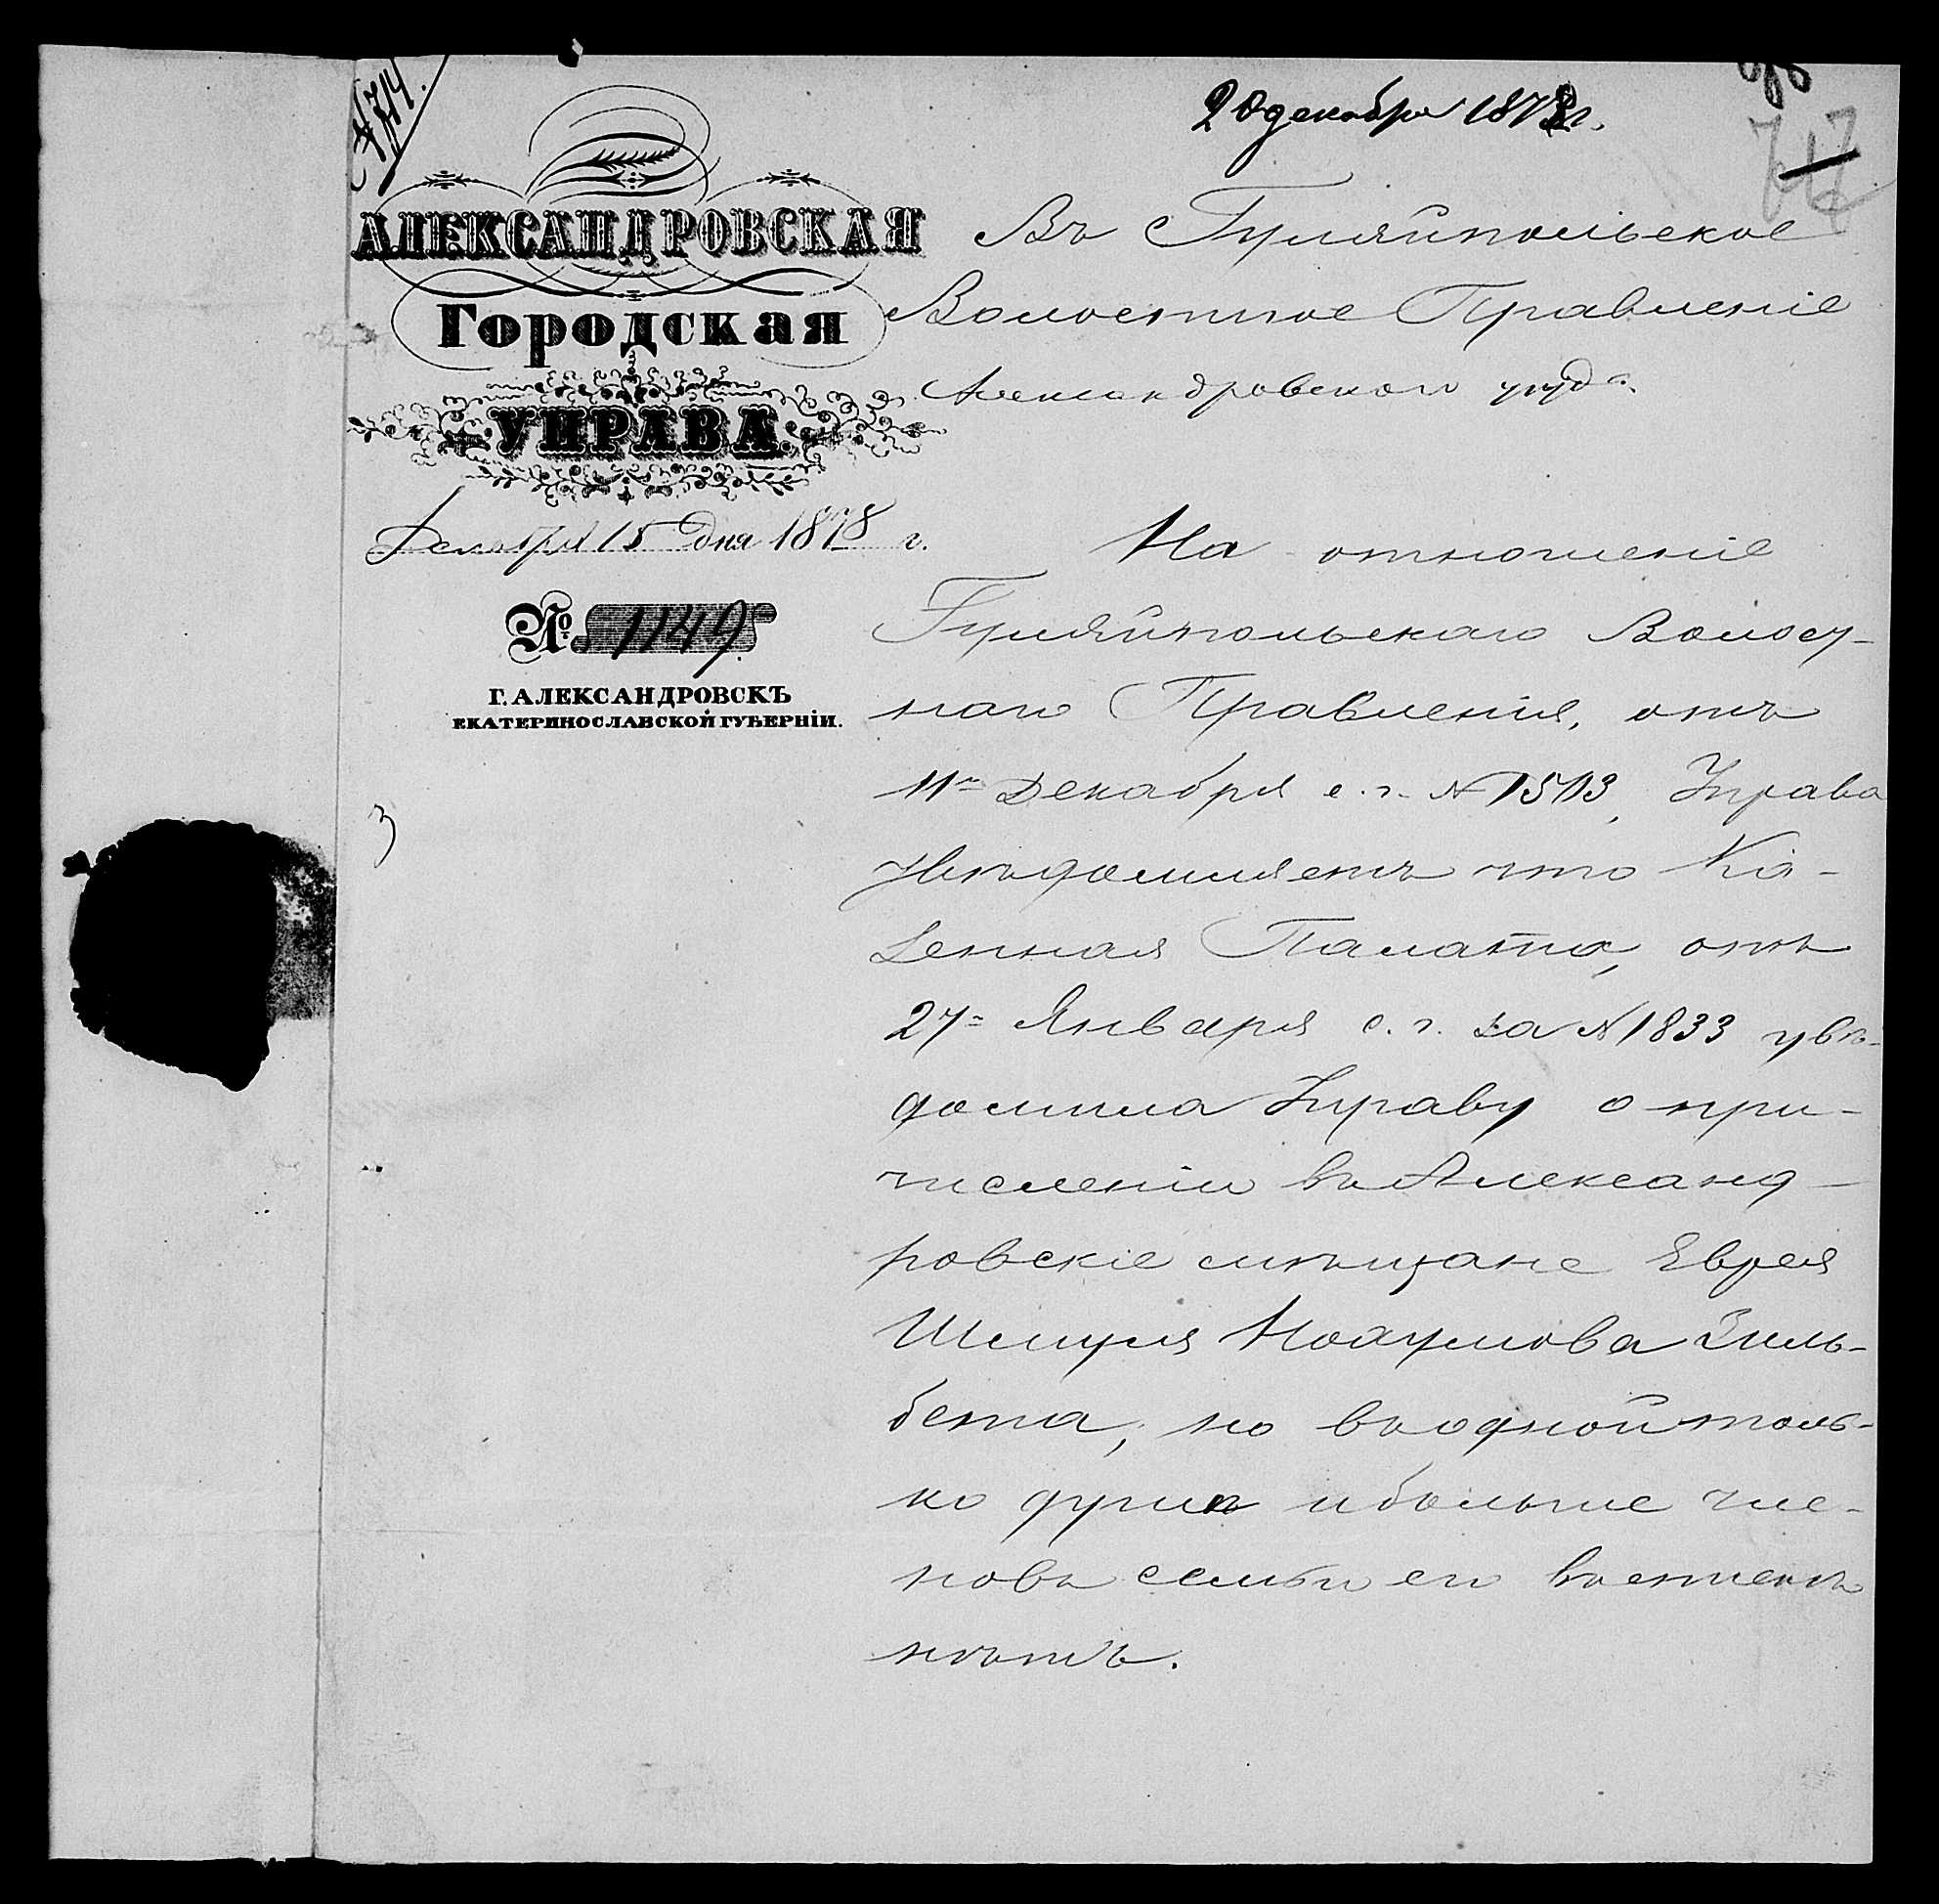 № 714.
20 декабря 1878 г.
717
АЛЕКСАНДРОВСКАЯ
Городская
УПРАВА.
Декабря 15 дня 1878 г.
№ 1149.
Г. АЛЕКСАНДРОВСКЪ
ЕКАТЕРИНОСЛАВСКОЙ ГУБЕРНІИ.
Въ Гуляйпольское
Волостное Правленіе
Александровскаго уѣзда.
На отношеніе
Гуляйпольскаго Волост-
наго Правленія, отъ
11го Декабря с. г. № 1503, Управа
увѣдомляетъ что Ка-
зенная Палата, отъ
27го Января с. г. за № 1833 увѣ-
домила Управу о при-
численіи въ Александ-
ровскіе мѣщане Еврея
Шмуля Нохумова Зиль-
бета, но въ одной толь-
ко душѣ и больше чле-
новъ семьи его въ
нѣтъ.